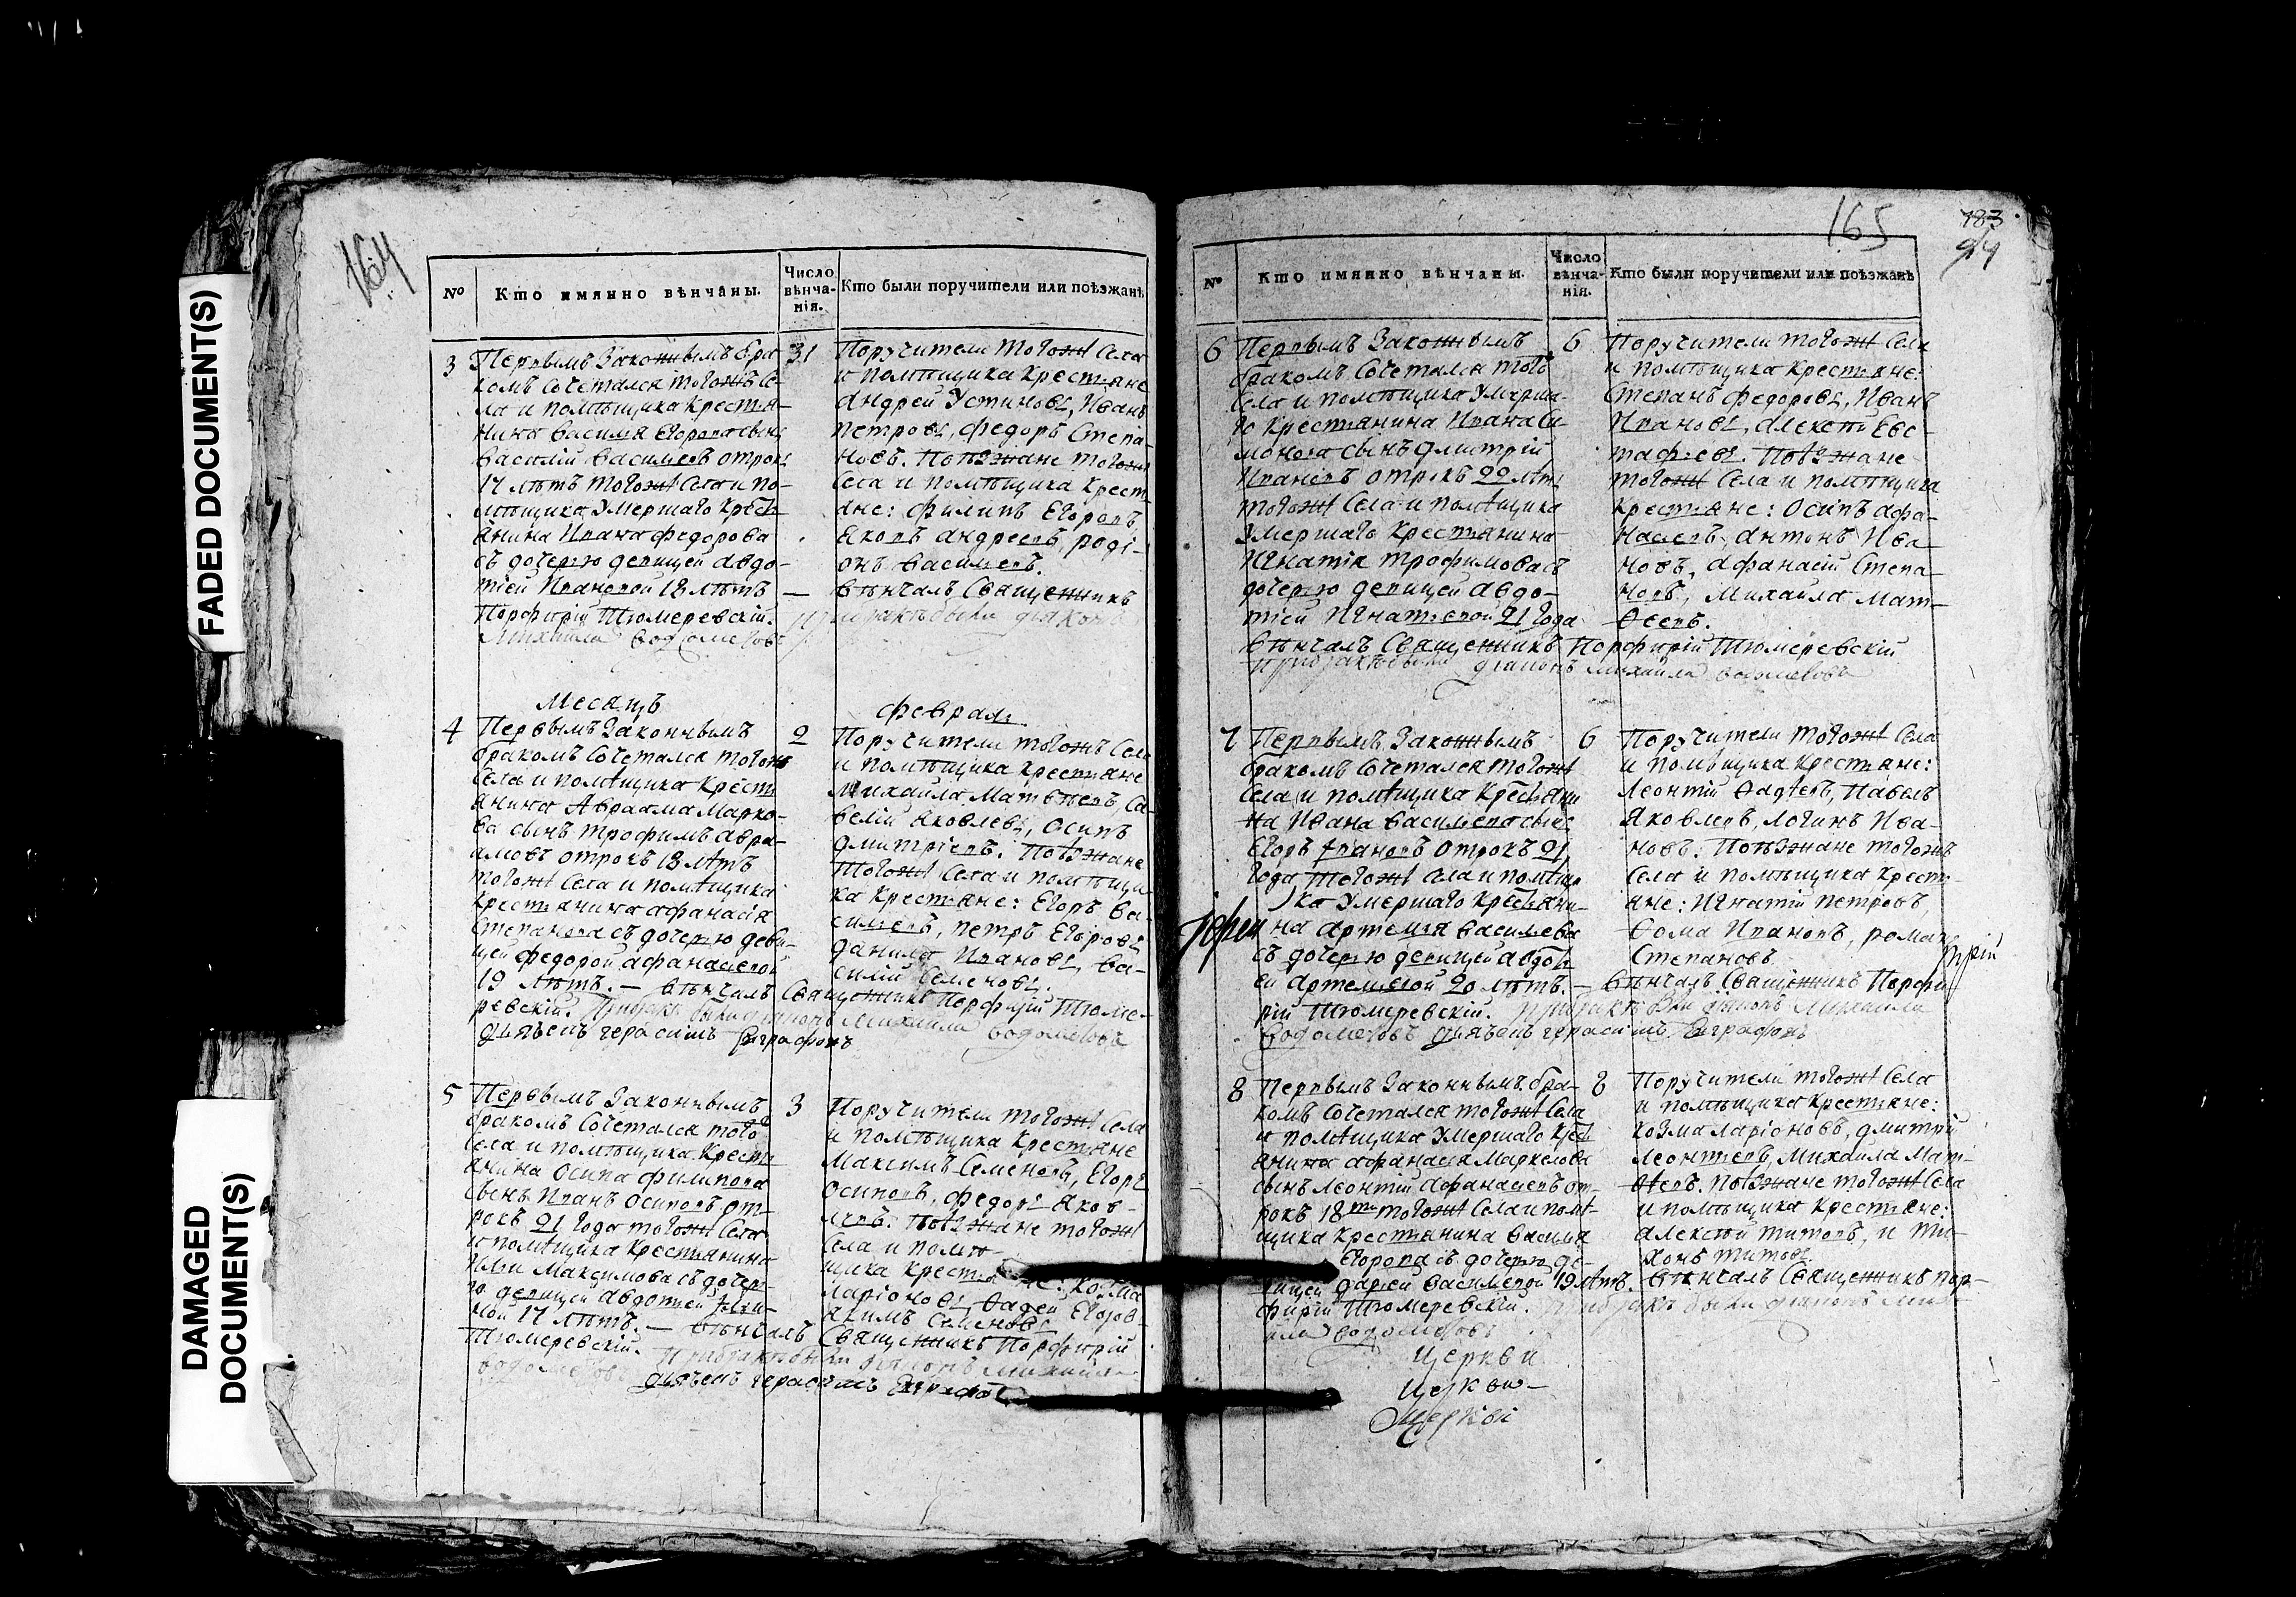 FADED DOCUMENT(S)
DAMAGED
DOCUMENT(S)
164
№
Кто имянно вѣнчаны.
Число
вѣнча-
нія.
Кто были поручители или поѣзжанѣ
3
Первымъ Законнымъ бра
комъ Сочетался тогожъ Се-
ла и помѣщика Крестья-
нина Василия Егорова сынъ
Василій Васильевъ отрокъ
17 лѣтъ тогожъ Села и по-
мѣщика Умершаго Крестья
янина Ивана федорова
съ дочерью девицей авдо-
тіей Ивановой 18 лѣтъ —
Порфирій Тюмеревскій.
Михаила Водометовъ
31
Поручители тогожъ Села
и помѣщика Крестьяне
Андрей Устиновъ, Иванъ
петровъ, федоръ Степа-
новъ. Поѣзжане тогожъ
Села и помѣщика Крестъ
яне: филипъ Егоровъ,
Яковъ андреевъ, роді-
онъ Васильевъ.
вѣнчалъ Священникъ
при бракѣ были діаконъ
Месяцъ
февраль
4
Первымъ Законнымъ
бракомъ Сочетался тогожъ
Села и помѣщика Кресть
янина Авраама Марко-
ва сынъ трофимъ авра-
амовъ отрокъ 18 лѣтъ
тогожъ Села и помѣщика
Крестьянина афанасія
Степанова съ дочерью деви-
цей федорой афанасьевой
19 лѣтъ. — вѣнчалъ Священникъ Порфирій Тюме-
ревскій. При бракѣ были діаконъ Михаила Водометовъ
дьячекъ герасимъ Евграфовъ
2
Поручители тогожъ Села
и помѣщика Крестьяне
Михаила Матвѣевъ, Са-
велій Яковлевъ, Осипъ
дмитріевъ. Поѣзжане
тогожъ Села и помѣщи
ка Крестьяне: Егоръ Ва-
сильевъ, петръ Егоровъ
данила Ивановъ, Ва-
силій Семеновъ.
5
Первымъ Законнымъ
бракомъ Сочетался того
Села и помѣщика Кресть
янина Осипа филипова
сынъ Иванъ Осиповъ от-
рокъ 21 года тогожъ Села
и помѣщика Крестьянина
Ильи Максимова съ дочерь-
ю девицей авдотьей Ильи-
ной 17 лѣтъ. — вѣнчалъ Священникъ Порфирій
Тюмеревскій. При бракѣ были діаконъ Михаила
Водометовъ дьячекъ герасимъ Евграфовъ
3
Поручители тогожъ Села
и помѣщика Крестьяне
Максимъ Семеновъ, Егоръ
Осиповъ, федоръ Яков-
левъ. Поѣзжане тогожъ
Села и помѣ
щика Крестьяне: Козма
ларіоновъ, Ѳадей Егоров
Якимъ Семеновъ
165
183
94
№
Кто имянно вѣнчаны.
Число
вѣнча-
нія.
Кто были поручители или поѣзжанѣ
6
Первымъ Законнымъ
бракомъ Сочетался тогъ
Села и помѣщика Умерша-
го Крестьянина Ивана Си-
монова сынъ дмитрій
Ивановъ отрокъ 22 лѣтъ
тогожъ Села и помѣщика
Умершаго Крестьянина
Игнатія трофимова съ
дочерью девицей авдо-
тіей Игнатьевой 21 года
вѣнчалъ Священникъ Порфирій Тюмеревскій
При бракѣ были діаконъ Михаила Водометовъ
6
Поручители тогожъ Села
и помѣщика Крестьяне:
Степанъ федоровъ, Иванъ
Ивановъ, алексѣй Евс-
тафьевъ. Поѣзжане
тогожъ Села и помѣщика
Крестьяне: Осипъ афа-
насьевъ, антонъ Ива
новъ, афанасій Степа-
новъ, Михаила Мат-
ѳеевъ.
7
Первымъ Законнымъ
бракомъ Сочетался тогожъ
Села и помѣщика Крестьяни
на Ивана Васильева сынъ
Егоръ Ивановъ отрокъ 21
года тогожъ Села и помѣщи
ка Умершаго Крестьяни-
на артемия Васильева
съ дочерью девицей авдоть
ей артемьевой 20 лѣтъ. — вѣнчалъ Священникъ Порфи-
рій Тюмеревскій. При бракѣ были діаконъ Михаила
Водометовъ дьячекъ герасимъ Евграфовъ
6
Поручители тогожъ Села
и помѣщика Крестьяне:
Леонтій Ѳадѣевъ, Павелъ
Яковлевъ, логинъ Ива-
новъ. Поѣзжане тогожъ
Села и помѣщика Кресть
яне: Игнатій петровъ,
Ѳома Ивановъ, роман
Степановъ
8
Первымъ Законнымъ бра-
комъ Сочетался тогожъ Села
и помѣщика Умершаго Крест
янина афанасья Маркелова
сынъ леонтій афанасьевъ от-
рокъ 18 тогожъ Села и помѣ-
щика Крестьянина Василья
Егорова съ дочерью де-
вицей дарьей Васильевой 19 лѣтъ. вѣнчалъ Священникъ пор-
фирій Тюмеревскій. При бракѣ были діаконъ Миха
ила Водометовъ
8
Поручители тогожъ Села
и помѣщика Крестьяне:
Козма ларіоновъ, дмитрій
леонтьевъ, Михаила Мат-
ѳеевъ. Поѣзжане тогожъ Села
и помѣщика Крестьяне:
алексѣй титовъ, и Ти-
хонъ титовъ.
Церкви
Церкви
Церкви